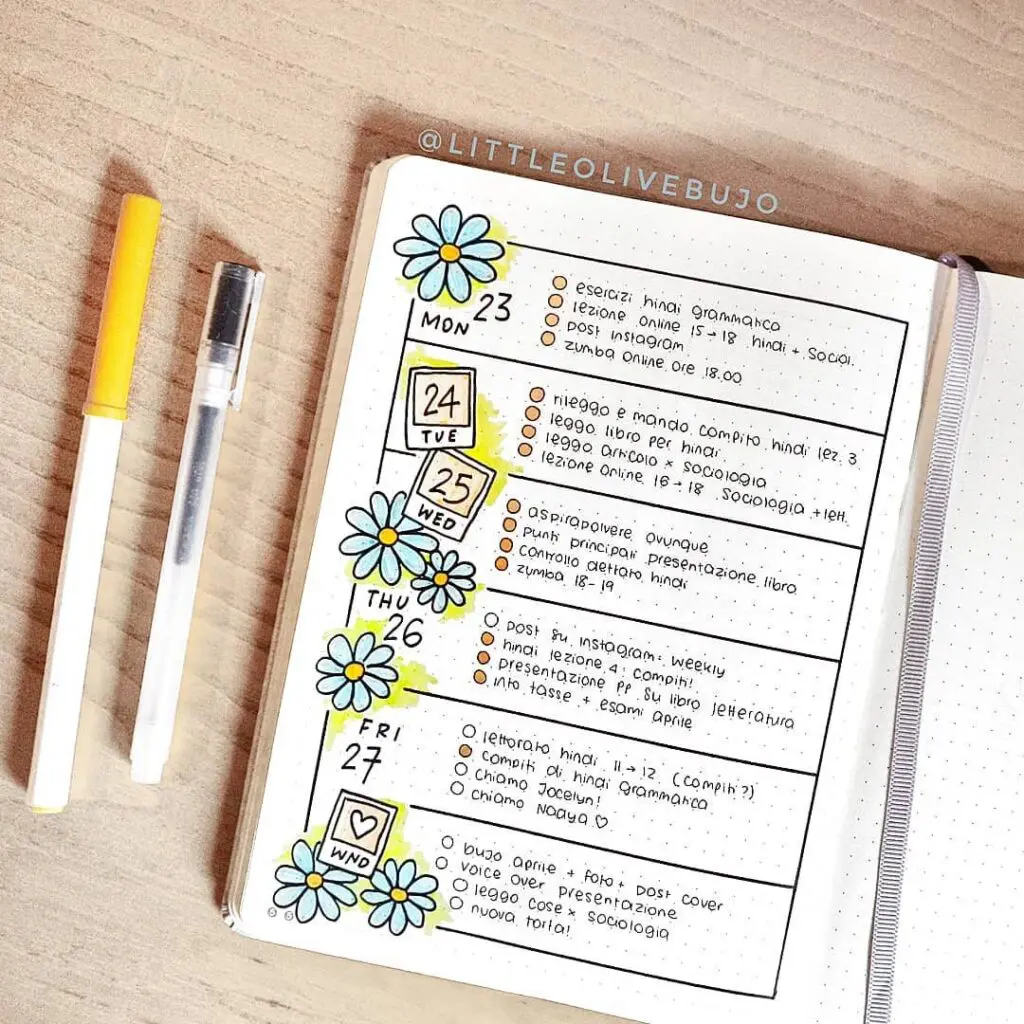 @LITTLEOLIVEBUJO
MON 23
esercizi hindi grammatica
lezione online 15→18 hindi + sociol.
post instagram
zumba online ore 18.00
24
TUE
rileggo e mando compito hindi lez. 3
leggo libro per hindi
leggo articolo x sociologia
lezione online 16→18 sociologia + lett.
25
WED
aspirapolvere ovunque
punti principali presentazione libro
controllo dettato hindi
zumba 18-19
THU
26
post su instagram: weekly
hindi lezione 4: compiti!
presentazione pp su libro letteratura
info tasse + esami aprile
FRI
27
lettorato hindi 11→12 (compiti?)
compiti di hindi grammatica
chiamo Jocelyn!
chiamo Naaya ♡
WND
bujo aprile + foto + post cover
voice over presentazione
leggo cose x sociologia
nuova torta!